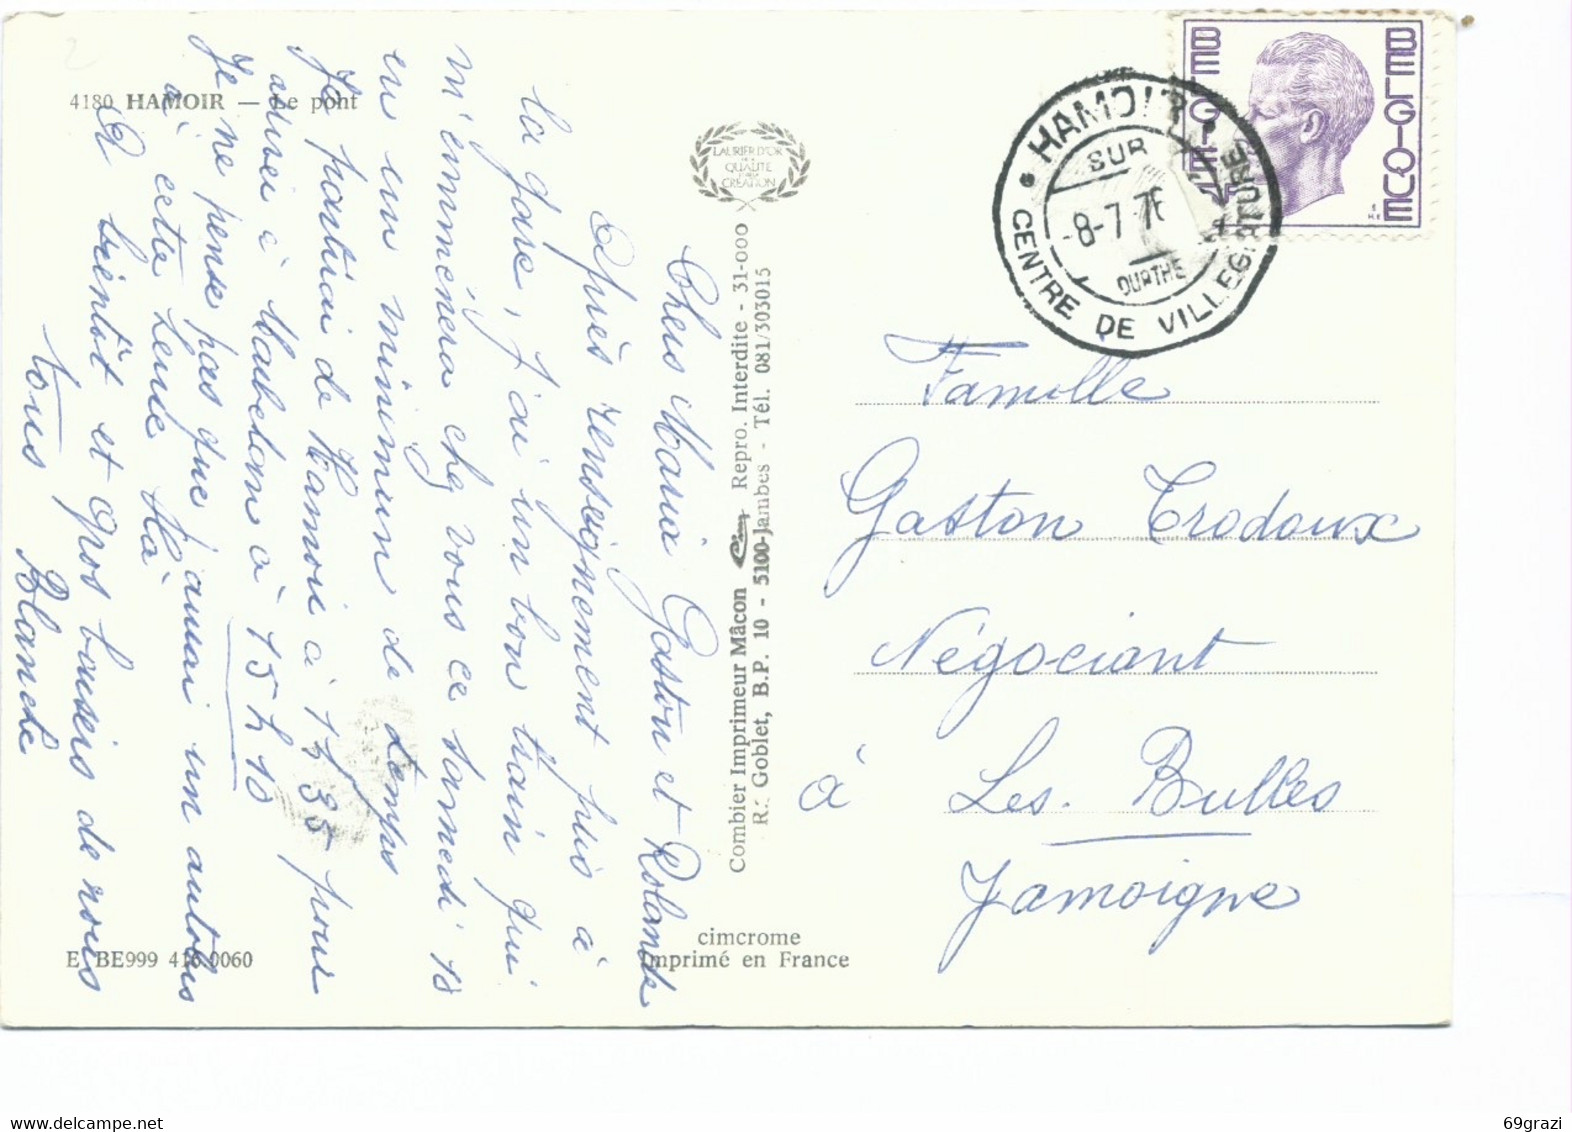 4180 HAMOIR — Le pont
Chers Maria Gaston et Rolande
Après renseignement pris à
la gare, j'ai un bon train qui
m'emmènera chez vous ce samedi 10
en un minimun de temps
Je partirai de Hamoir à 1 35 pour
à 15 h 10
Je ne pense pas que j'aurai un autobus
à cette heure là
A bientôt et gros baisers de nous
tous Blanche
E BE999 416.0060
LAURIER D'OR
DE LA
QUALITÉ
CRÉATION
Combier Imprimeur Mâcon Cim Repro. Interdite - 31-000
R. Goblet, B.P. 10 - 5100-Jambes - Tél. 081/303015
cimcrome
Imprimé en France
BELGIE
BELGIQUE
HAMOIR
SUR
-8-7-76
OURTHE
CENTRE DE VILLEGIATURE
Famille
Gaston Trodoux
Négociant
à Les Bulles
Jamoigne
69grazi